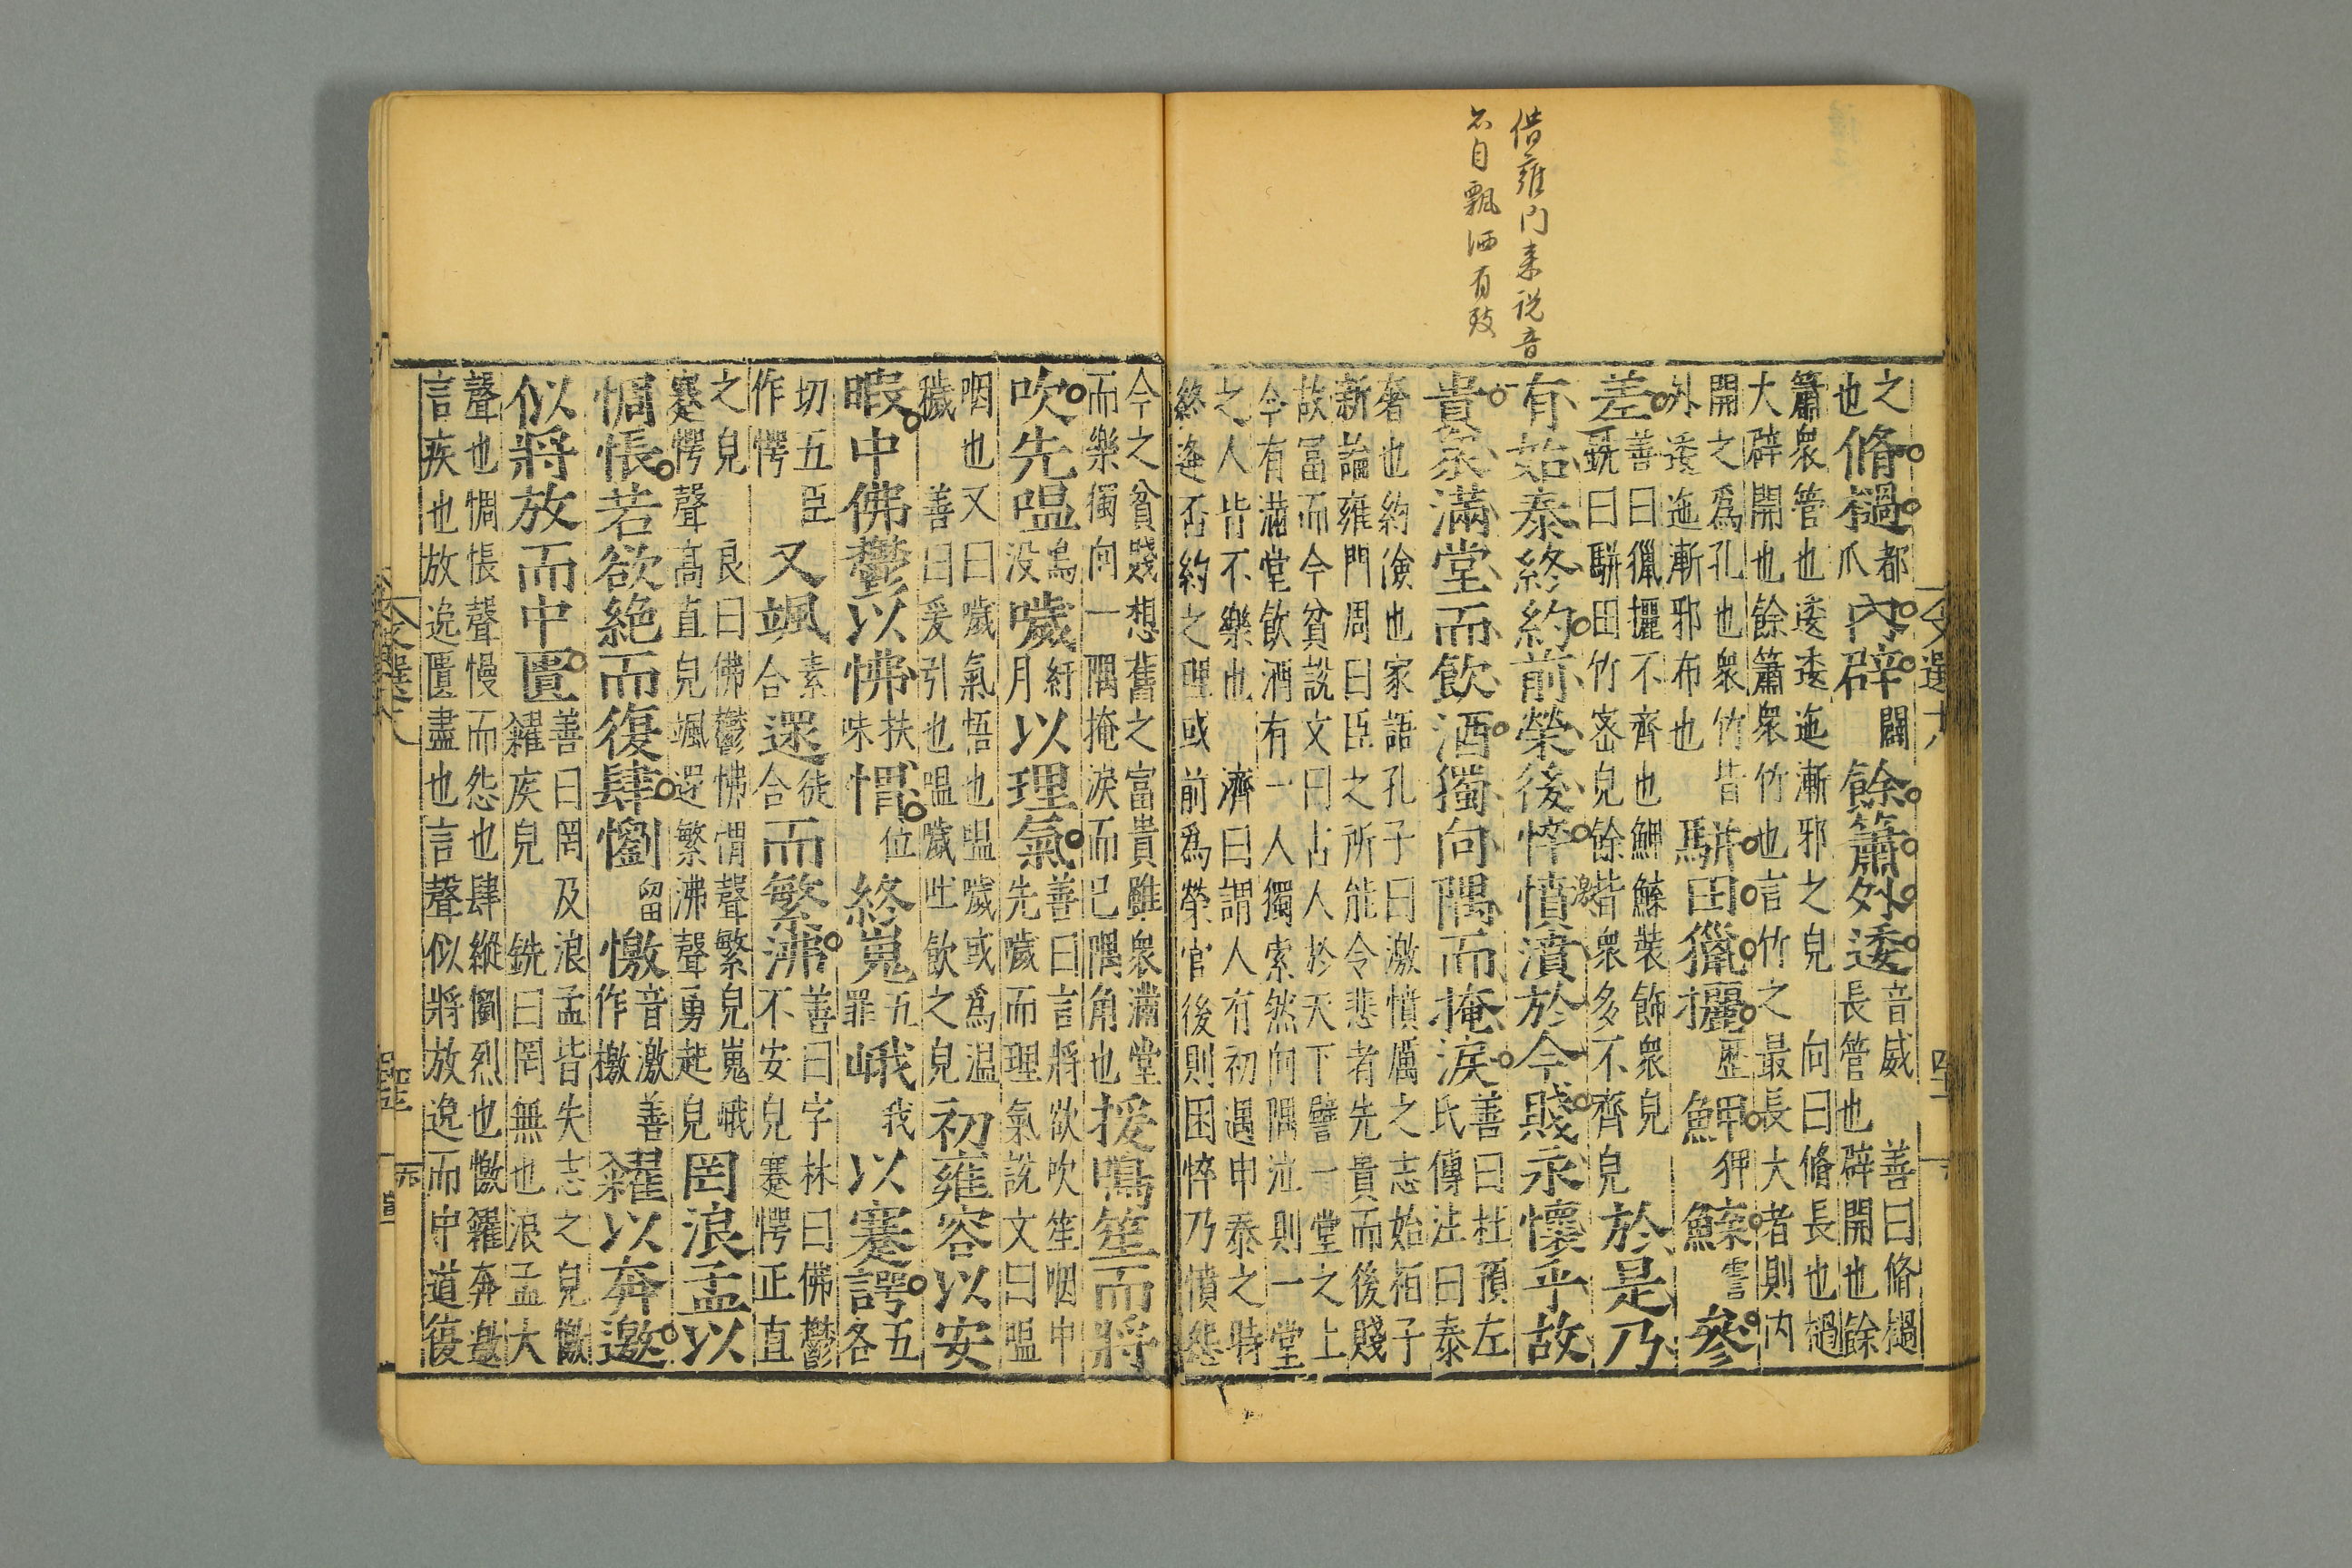 借雍门来说音
亦自飘洒有致
之
也脩檛都爪内辟闢餘簫外逶音威善曰脩檛長管也辟開也餘
簫衆管也逶逶迤漸邪之皃向曰脩長也檛
大辟開也餘簫衆竹也言竹之最長大者則内
開之爲孔也衆竹皆
外逶迤漸邪布也駢田獵攦歷鮙狎鰇霅參
差善曰獵攦不齊也鮙鰇裝飾衆皃
銑曰駢田竹宻皃餘皆衆多不齊皃於是乃
有始泰終約前榮後悴憤激於今賤永懷乎故
貴衆滿堂而飲酒獨向隅而掩淚善曰杜預左氏傳注曰泰
奢也約儉也家語孔子曰激憤厲之志始栢子
新論雍門周曰臣之所能令悲者先貴而後賤
故冨而今貧説文曰古人於天下譬一堂之上
今有滿堂飲酒有一人獨索然向隅泣則一堂
之人皆不樂也濟曰謂人有初遇申泰之時
終逢否約之理或前爲榮官後則困悴乃憤怨
今之貧賤想舊之富貴雖衆滿堂
而樂獨向一隅掩淚而已隅角也援鳴笙而將
吹先嗢烏没噦紆月以理氣善曰言將欲吹笙咽中先噦而理氣説文曰嗢
咽也又曰噦氣悟也嗢噦或爲温
穢善曰爰引也嗢噦吐飲之皃初雍容以安
暇中佛鬱以怫扶味㥜位終嵬五罪峨我以蹇諤五各
切五臣
作愕又颯素合遝徒合而繁沸善曰字林曰佛鬱不安皃蹇愕正直
之皃良曰佛鬱怫㥜聲繁皃嵬峨
蹇愕聲高直皃颯遝繁沸聲勇起皃罔浪孟以
惆悵若欲絶而復肆懰留憿音激善作檄糴以奔邀
似將放而中匱善曰罔及浪孟皆失志之皃憿糴疾皃銑曰罔無也浪孟大
聲也惆悵聲慢而怨也肆縱懰烈也憿糴奔邀
言疾也放逸匱盡也言聲似將放逸而中道復
文選十八